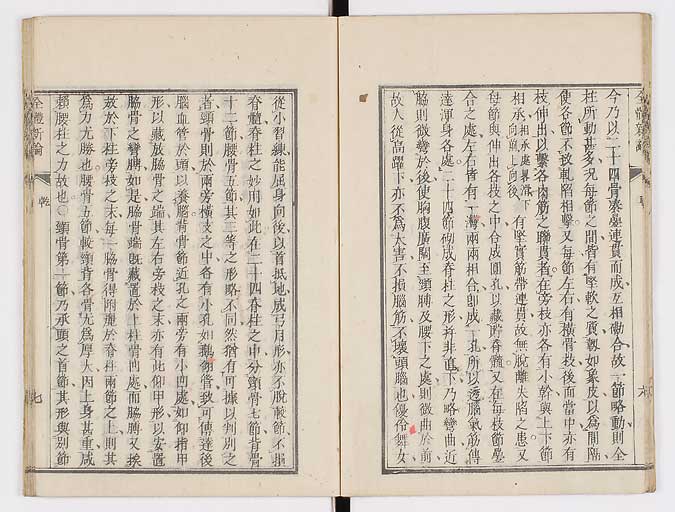 今乃以二十四骨湊疊連貫而成互相湊合故一節略動則全
柱所動甚多況每節之間皆有堅軟之質韌如象皮以爲間隔
使各節不致軋陷相擊又每節左右有橫骨枝後面當中亦有
枝伸出以繫各肉筋之聯貫者在旁枝亦各有小幹與上下節
相承 相承處畧滑下向前上向後 有堅實筋帶連貫故無脫離失陷之患又
每節與伸出各枝之中合成圓孔以藏脊髓又在每枝節疊
合之處左右皆有一灣兩兩相合卽成一孔所以透腦氣筋傳
達渾身各處二十四節砌成脊柱之形幷非直下乃略彎曲近
胸則微彎於後使胸腹廣闊至頸膊及腰下之處則微曲於前
故人從高躍下亦不爲大害不損腦筋不壞頭腦也優伶舞女
全體新論
乾
七
從小習練能屈身向後以首抵地成弓月形亦不脫骱節不損
脊髓脊柱之妙用如此在二十四脊柱之中分頸骨七節背骨
十二節腰骨五節其三等之形略不同然猶有可據以判別之
者頸骨則於兩旁橫枝之中各有小孔如鵝翎管致可傳達後
腦血管於頭以養腦背骨節近孔之兩旁有小凹處如仰指甲
形以藏放脇骨之端其左右旁枝之末亦有此仰甲形以安置
脇骨之臂膊如是脇骨端旣藏置於上柱骨凹處而脇膊又挨
放於下柱旁枝之末每一脇骨得附麗於脊柱兩節之上則其
爲力尤勝也腰骨五節較頸背各骨尤爲厚大因上身甚重咸
賴腰柱之力故也○頸骨第一節乃承頭之首節其形與別節